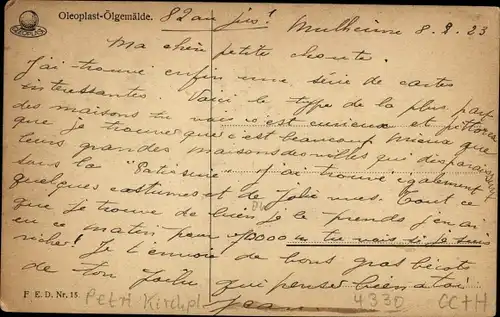 Oleoplast-Ölgemälde.
82 au jus!
Mulheim 8.2.23
Ma chère petite choute.
J'ai trouvé enfin une série de cartes
interessantes Voici le type de la plus part
des maisons tu vois c'est curieux et pittoresque
que je trouve que c'est beaucoup mieux que
leurs grandes maisons des villes qui disparaissent
sous la "Patisserie" J'ai trouvé également
quelques costumes et de jolies vues. Tout ce
que je trouve de bien je le prends j'en ai
eu ce matin pour 70000 m tu vois si je suis
riche! Je t'envoie de bons gros bécots
de ton Jeannot qui pense bien à toi
Jean
F. E. D. Nr. 15.
Petri Kirchpl.
4330
CC+H